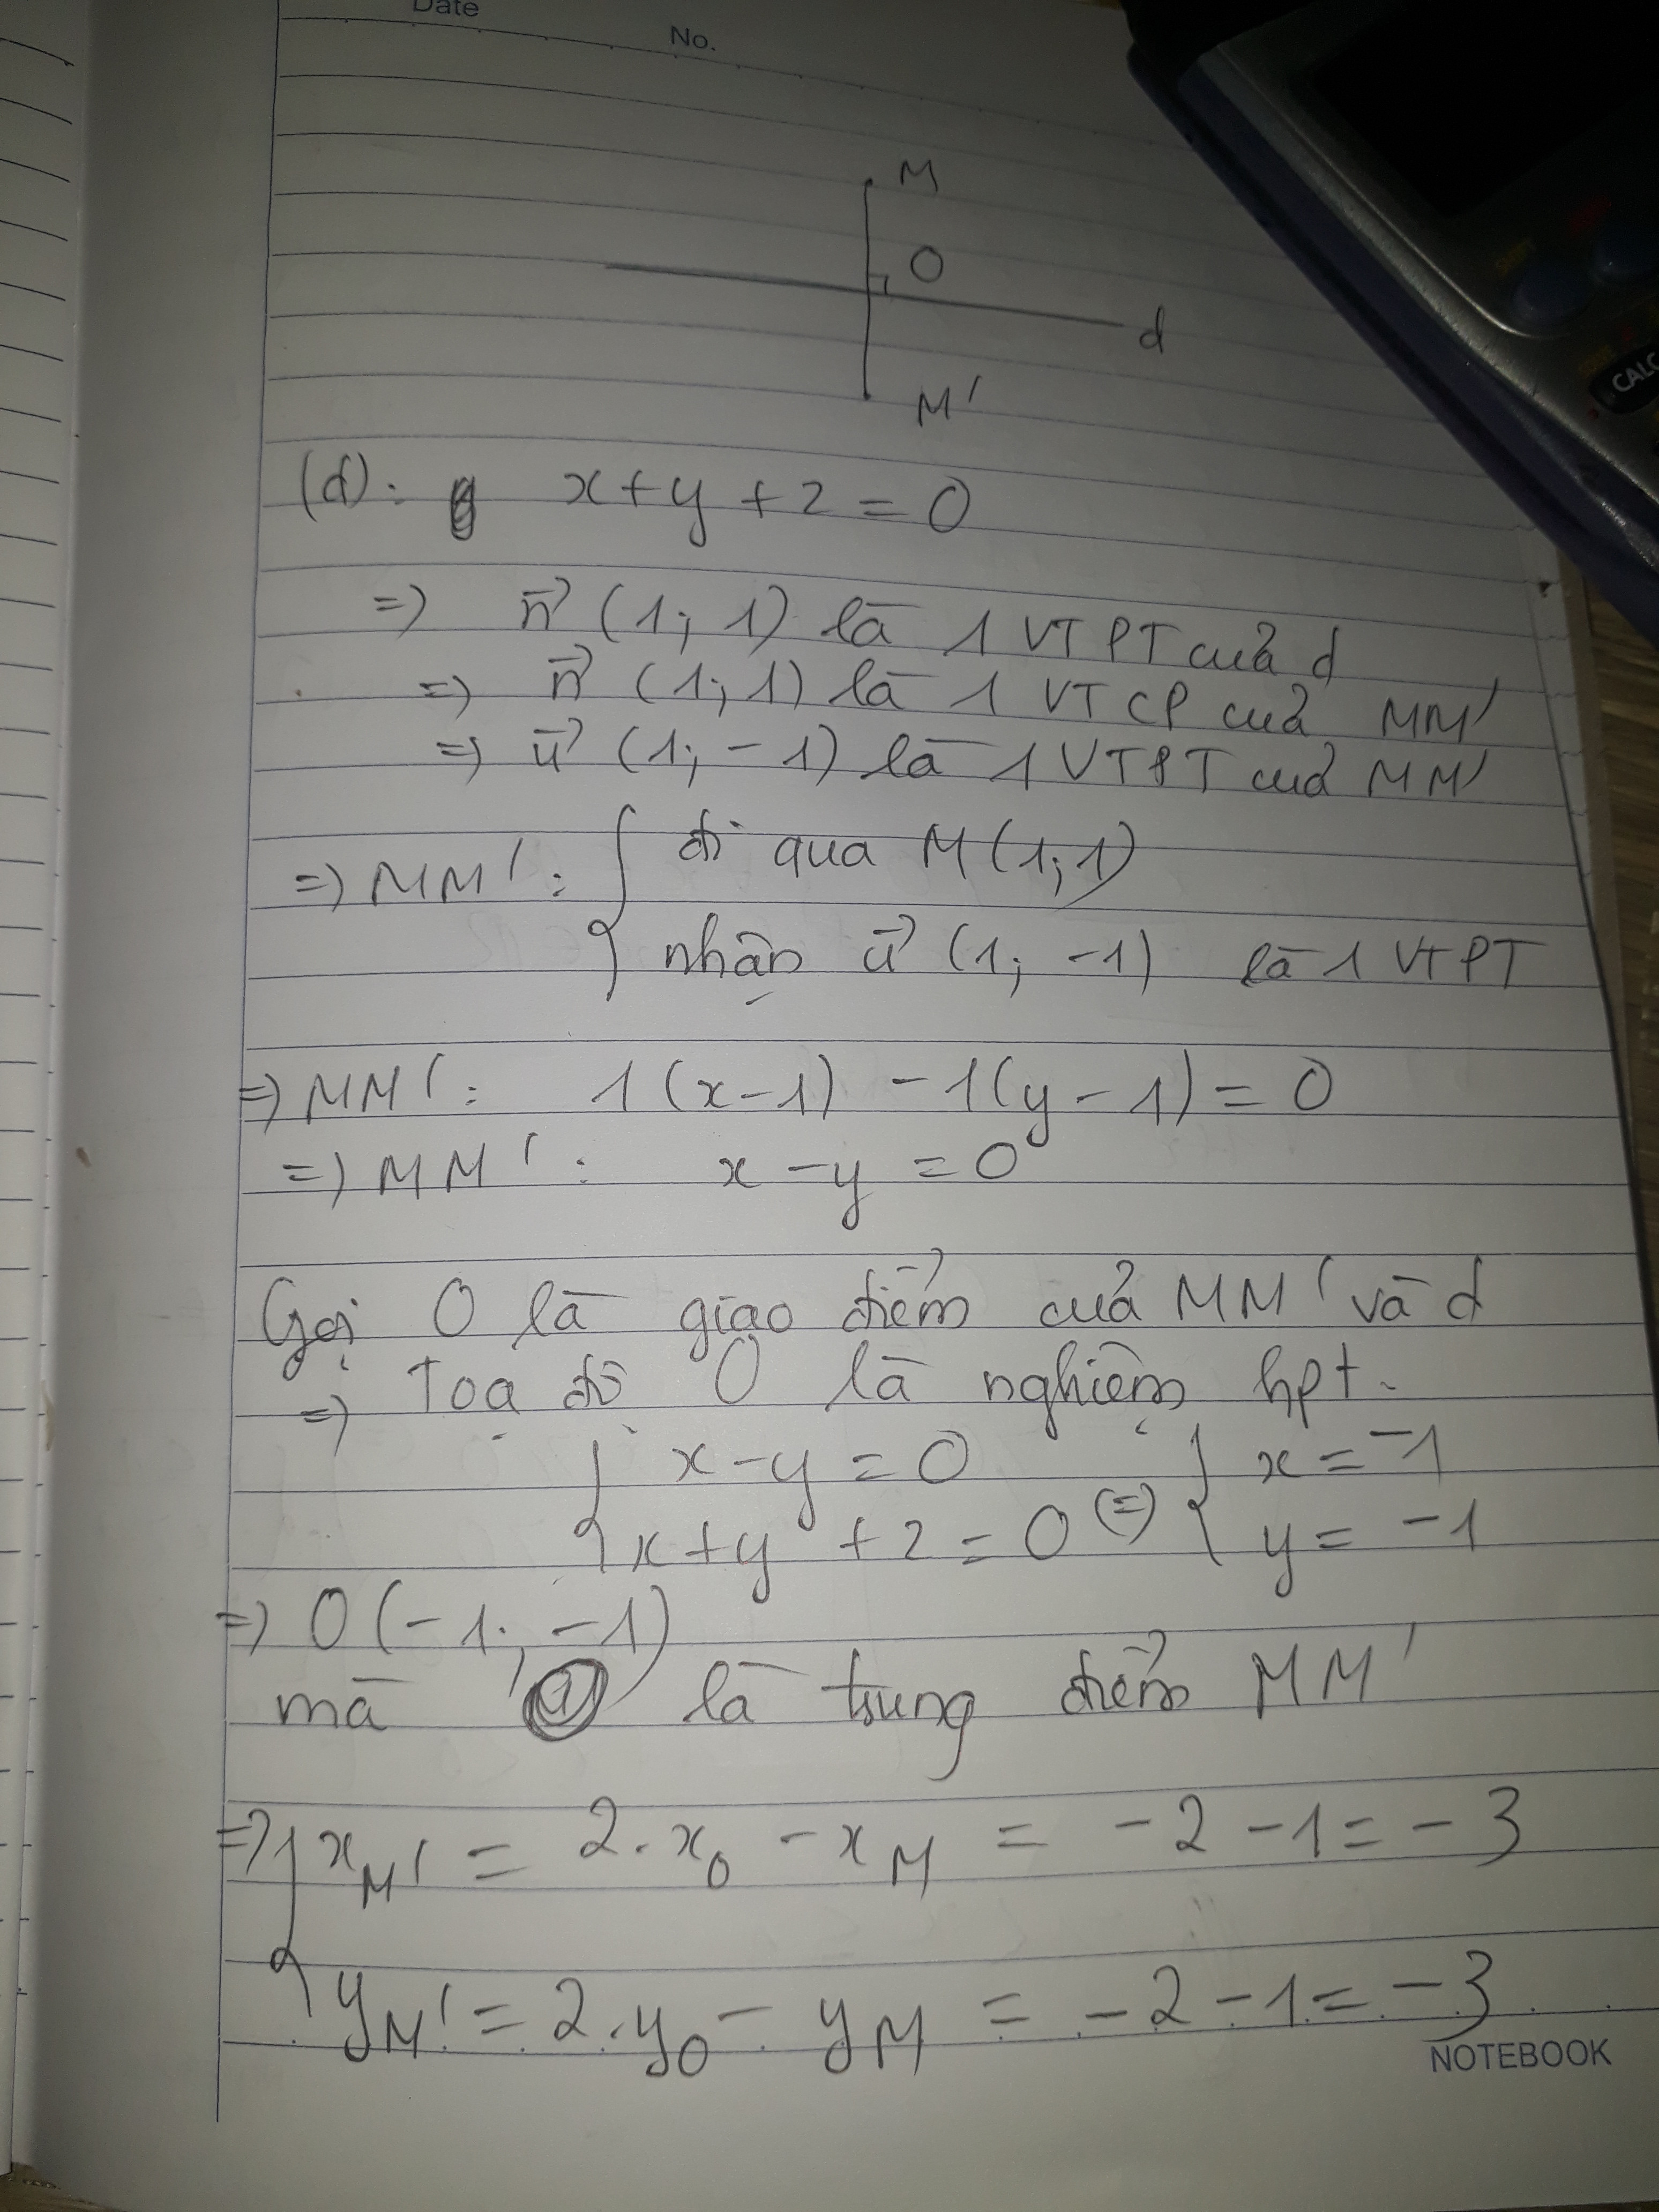 Date
No.
M
O
d
M'
(d): x+y+2=0
=) n⃗ (1; 1) là 1 VTPT của d
=) n⃗ (1; 1) là 1 VTCP của MM'
=) u⃗ (1; -1) là 1 VTPT của MM'
=) MM': { đi qua M(1; 1)
nhận u⃗ (1; -1) là 1 VTPT
=) MM': 1(x-1) -1(y-1)=0
=) MM': x-y=0
Gọi O là giao điểm của MM' và d
=) Toạ độ O là nghiệm hpt.
{ x-y=0 { x=-1
x+y+2=0 (=) y=-1
=) O(-1; -1)
mà là trung điểm MM'
=) { xM' = 2.xO - xM = -2-1=-3
yM' = 2.yO - yM = -2-1=-3
NOTEBOOK
CALC